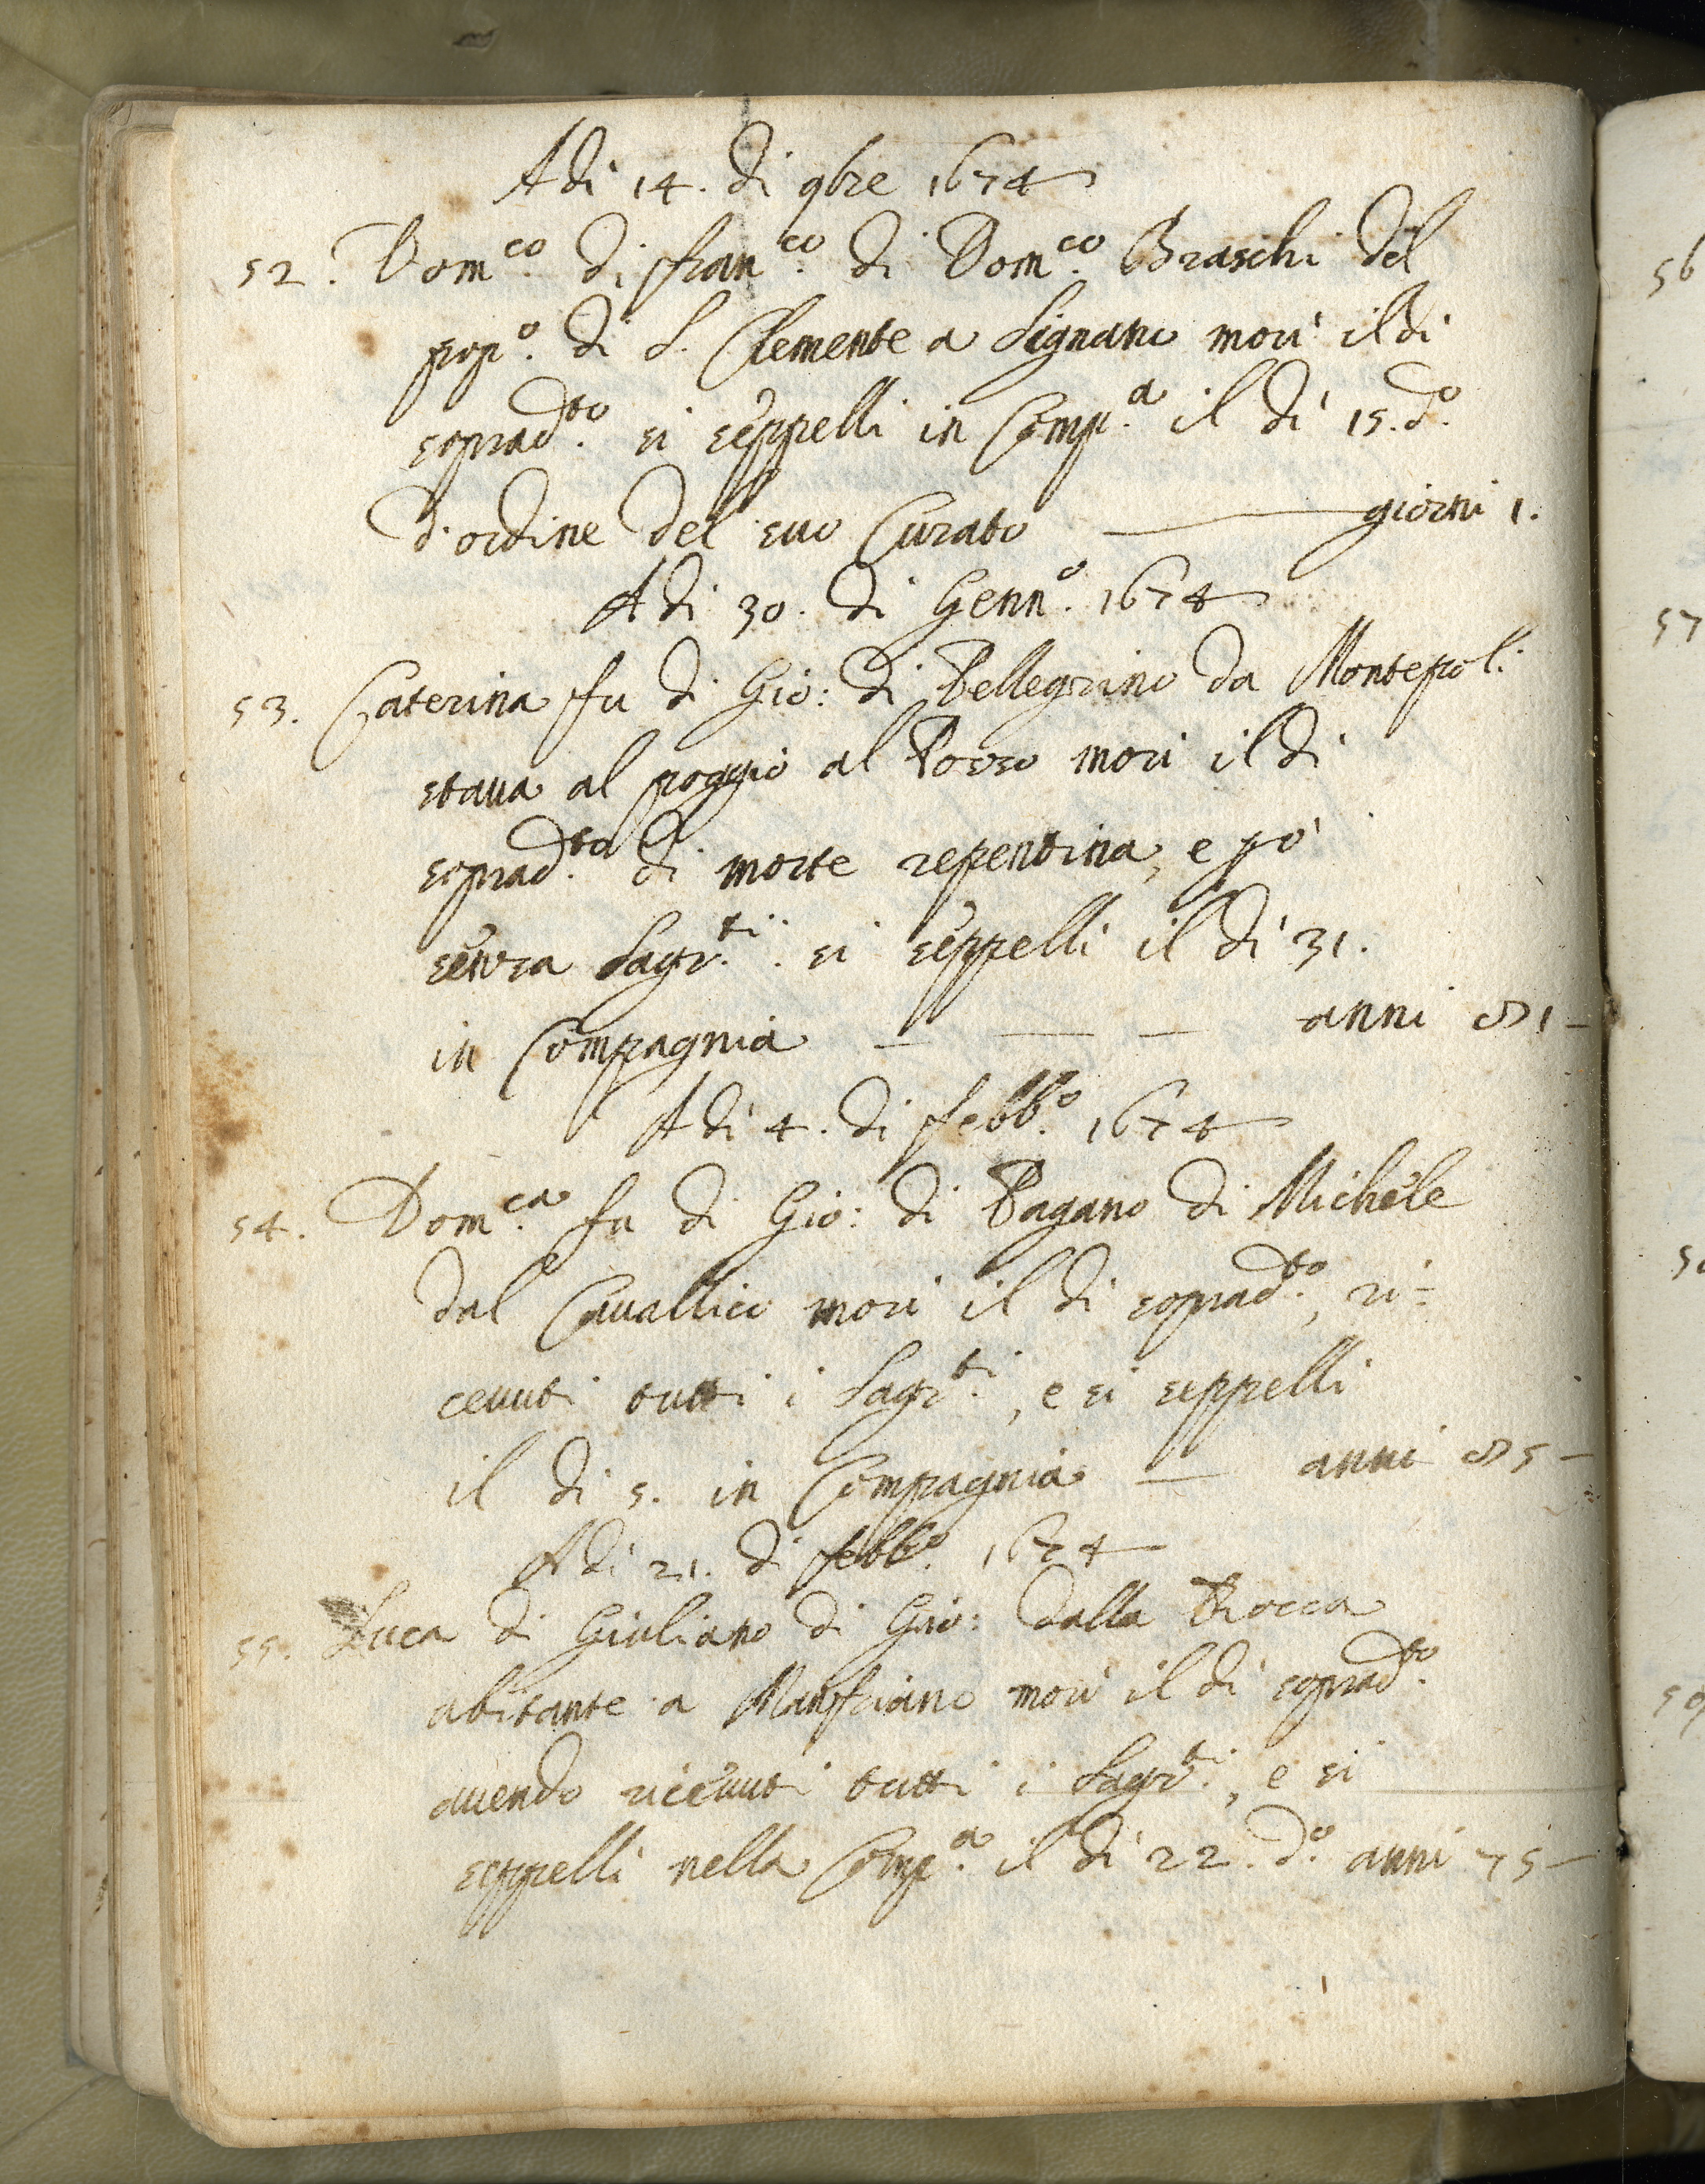 A di 14. di 9bre 1674
52. Dom.co di Fran.co di Dom.co Braschi del
pop.o di S. Clemente a Signano morì il di
soprad.to si seppellì in Comp.a il dì 15. d.o
d'ordine del suo Curato — giorni 1.
A di 30. di Genn.o 1674
53. Caterina fu di Gio: di Pellegrino da Montepoli
staua al poggio al Pozzo morì il di
soprad.to di morte repentina, e però
senza Sagr.ti si seppellì il dì 31.
in Compagnia — — — anni 81 —
A dì 4. di Febb.o 1674
54. Dom.ca fu di Gio: di Pagano di Michele
dal Cauallico morì il di soprad.to, ri=
ceuuti tutti i Sagr.ti, e si seppellì
il di 5. in Compagnia — anni 85 —
A di 21. di Febb.o 1674
55. Luca di Giuliano di Gio: dalla Rocca
abitante a morì il dì soprad.to
auendo riceuuti tutti i Sagr.ti, e si
seppellì nella Comp.a il dì 22. d.o anni 75 —
56
57